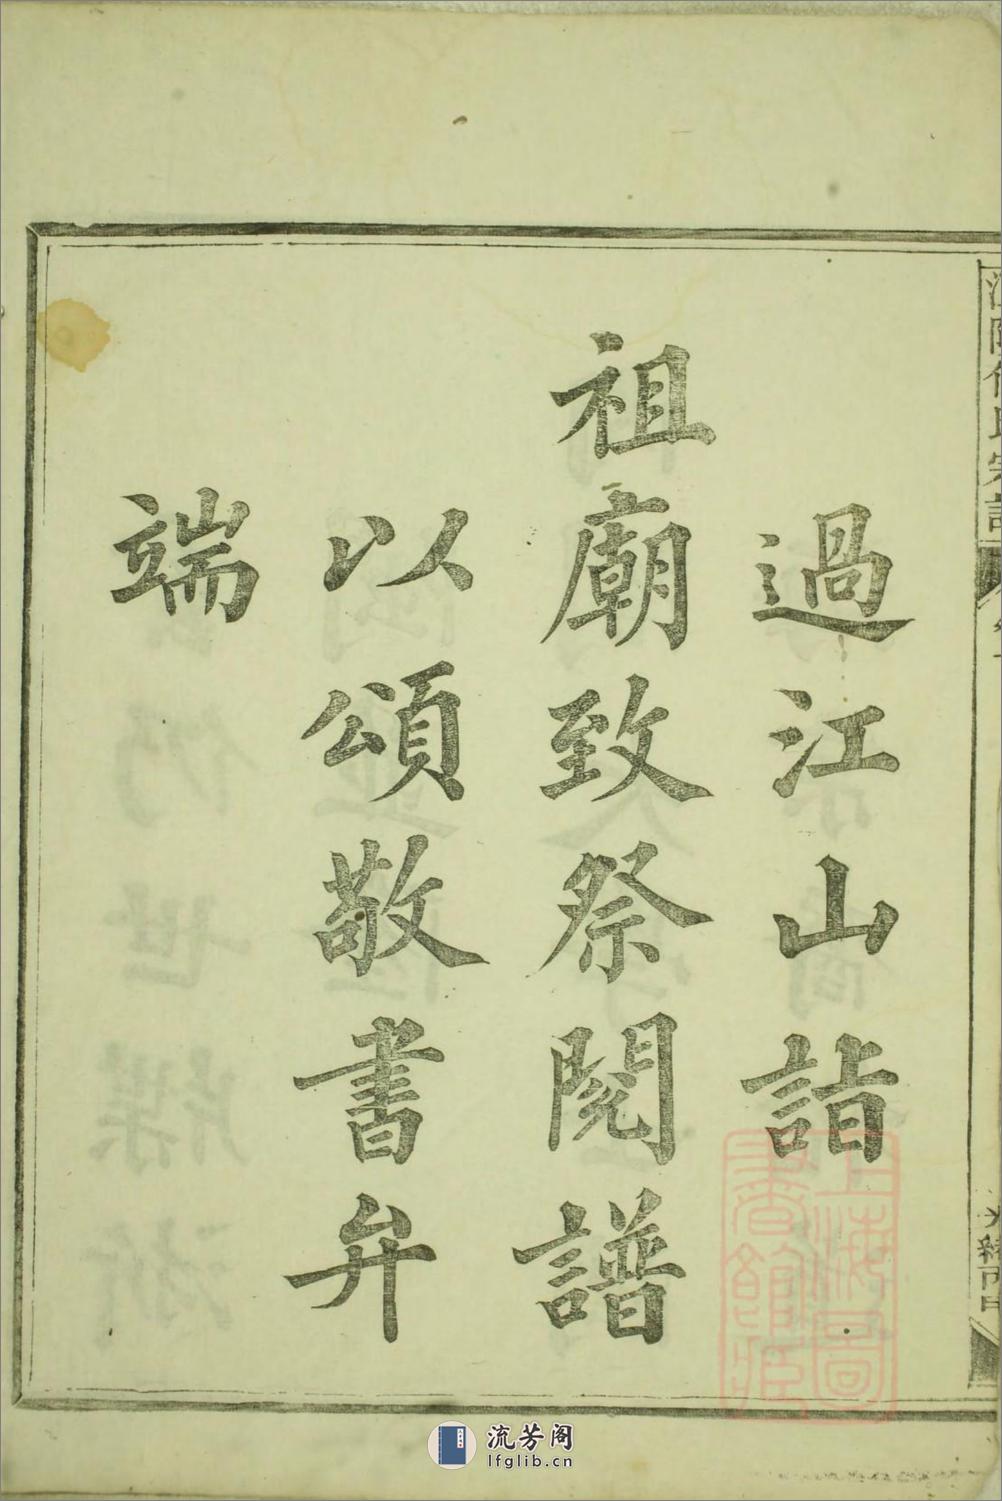 過江山詣
祖廟致祭閱譜
以頌敬書弁
端
上海圖書館藏
流芳阁
lfglib.cn